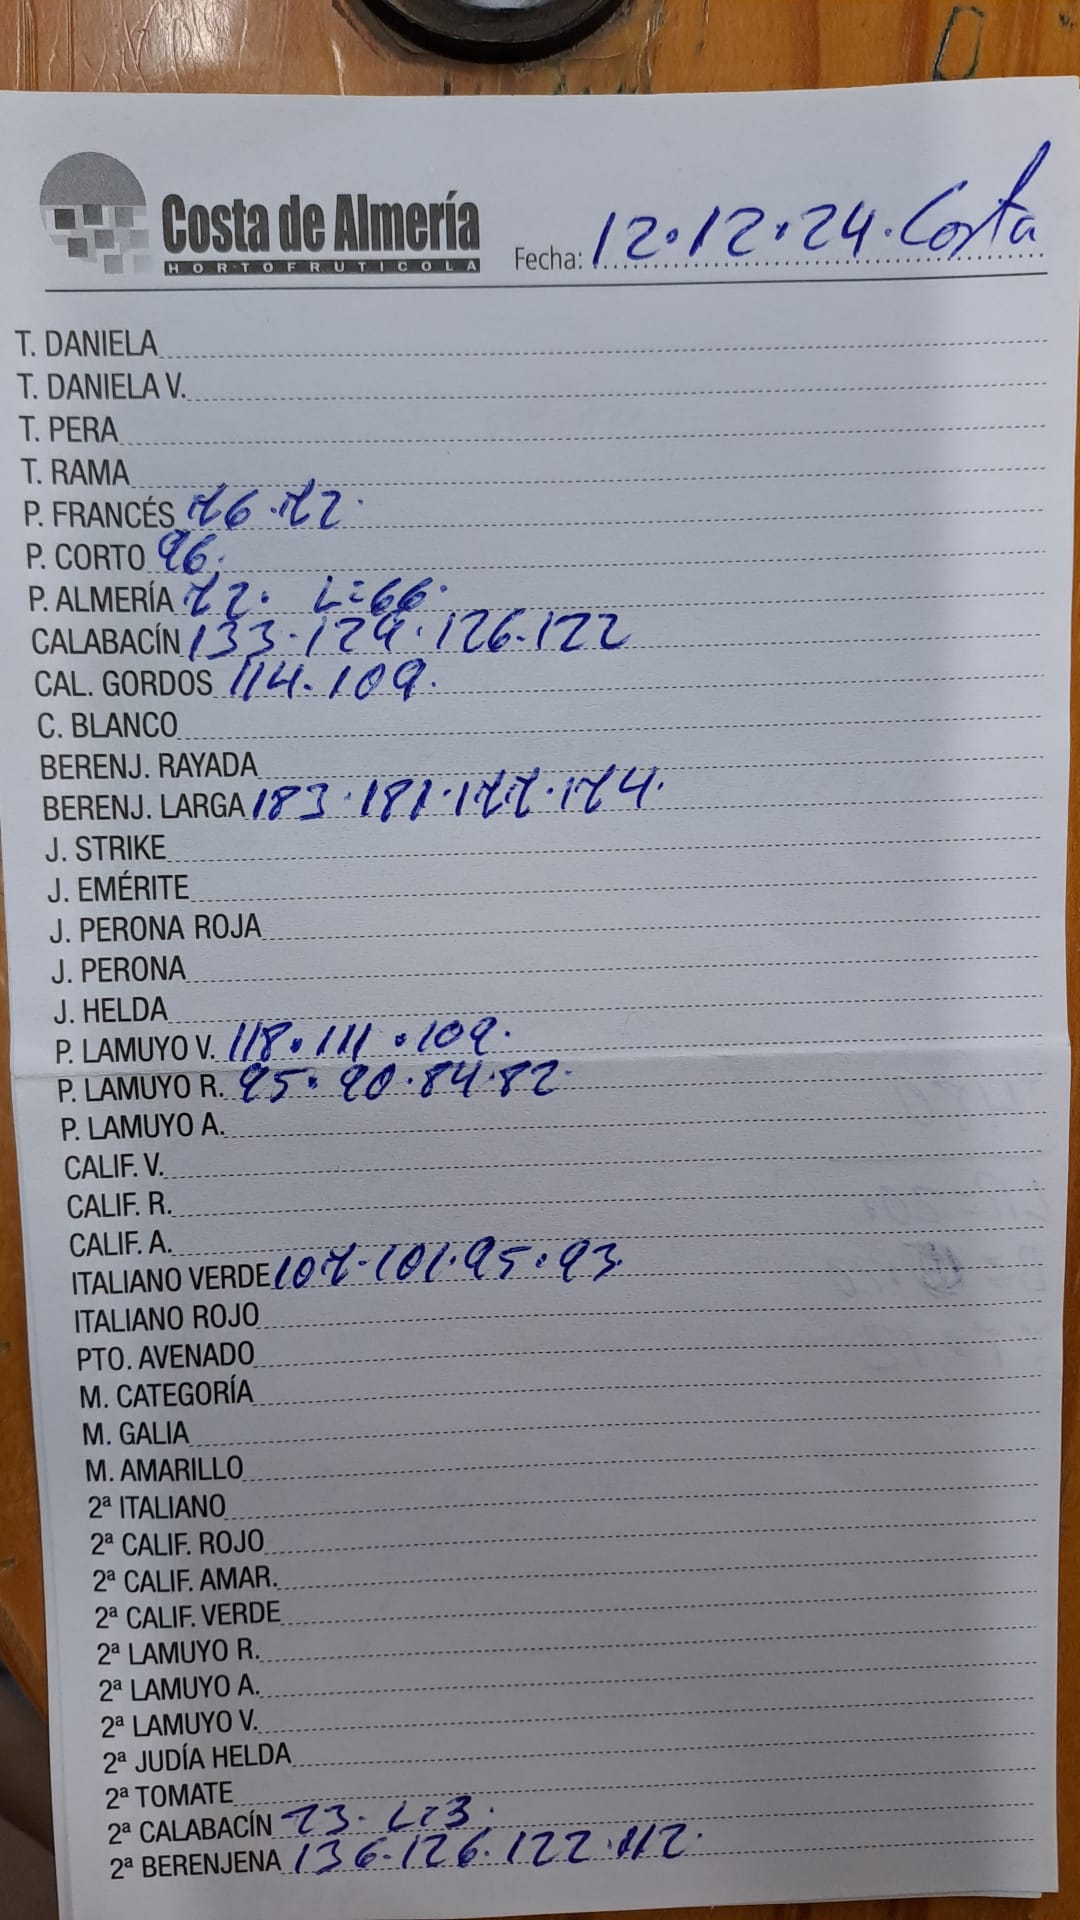 Costa de Almería
HORTOFRUTICOLA
Fecha: 12.12.24. Costa
T. DANIELA
T. DANIELA V.
T. PERA
T. RAMA
P. FRANCÉS 76.72.
P. CORTO 96.
P. ALMERÍA 72. L=66.
CALABACÍN 133.129.126.122
CAL. GORDOS 114.109.
C. BLANCO
BERENJ. RAYADA
BERENJ. LARGA 183.181.177.174.
J. STRIKE
J. EMÉRITE
J. PERONA ROJA
J. PERONA
J. HELDA
P. LAMUYO V. 118.111.109.
P. LAMUYO R. 95.90.84.82.
P. LAMUYO A.
CALIF. V.
CALIF. R.
CALIF. A.
ITALIANO VERDE 107.101.95.93.
ITALIANO ROJO
PTO. AVENADO
M. CATEGORÍA
M. GALIA
M. AMARILLO
2ª ITALIANO
2ª CALIF. ROJO
2ª CALIF. AMAR.
2ª CALIF. VERDE
2ª LAMUYO R.
2ª LAMUYO A.
2ª LAMUYO V.
2ª JUDÍA HELDA
2ª TOMATE
2ª CALABACÍN
2ª BERENJENA 136.126.122.112.